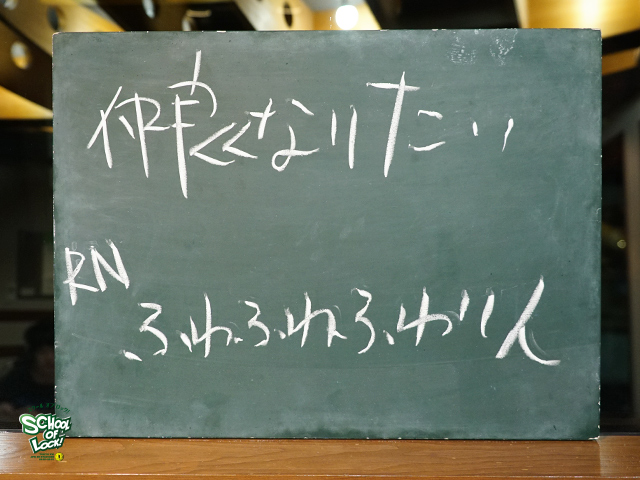 仲良くなりたい
RN
ふわふわふわりん
SCHOOL
OF
LOCK!